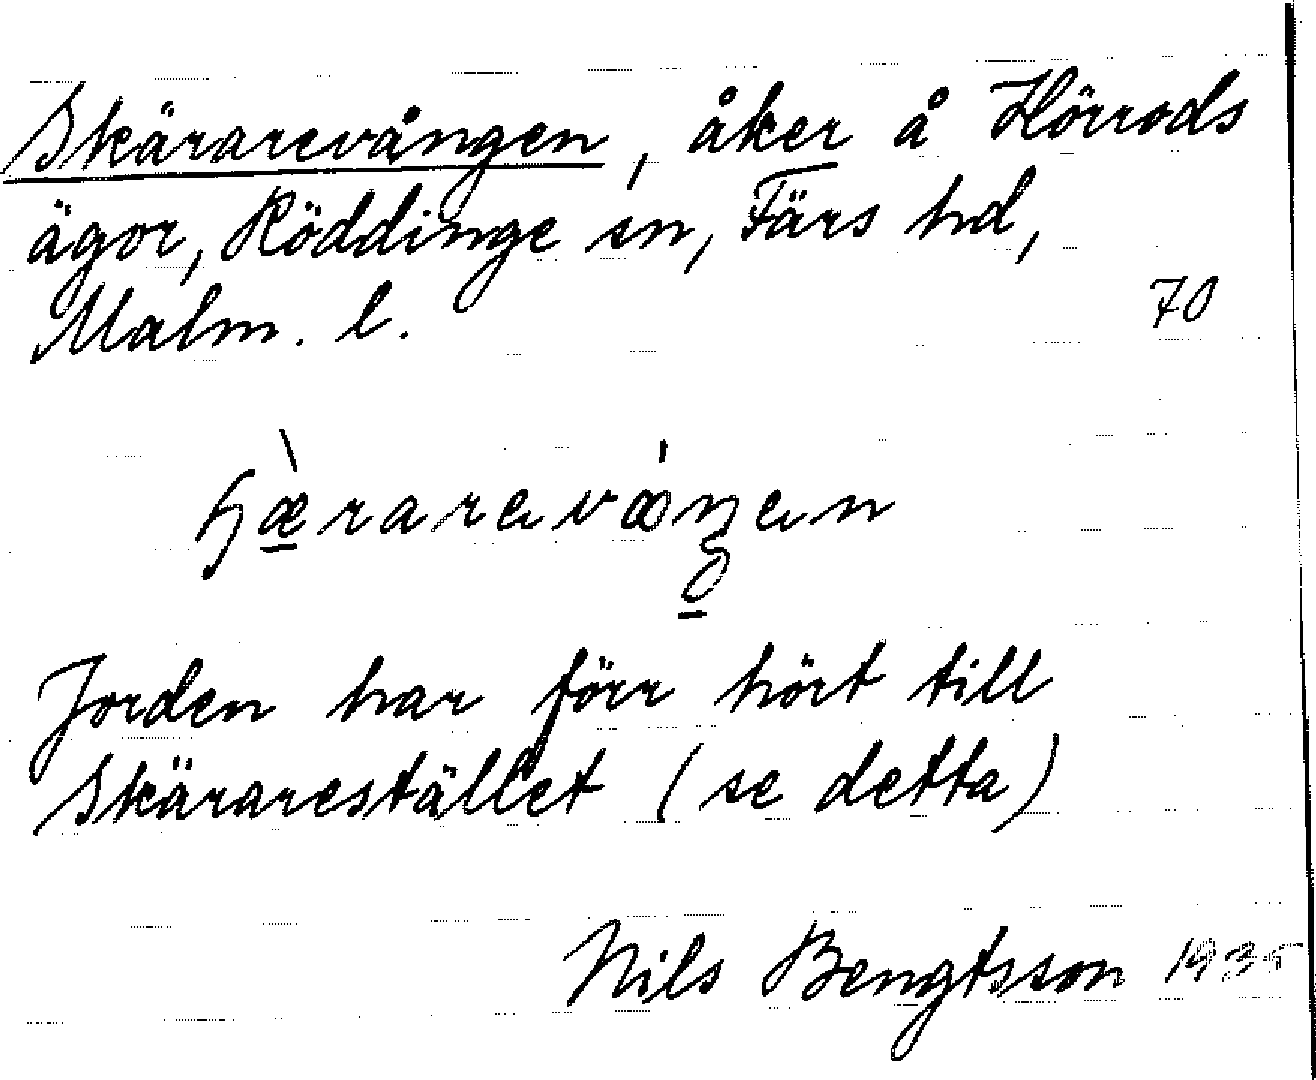 Skärarevången, åker å Hörrods
ägor, Röddinge sn, Färs hd,
Malm. l.
70
Jorden har förr hört till
Skärarestället (se detta)
Nils Bengtsson 1935